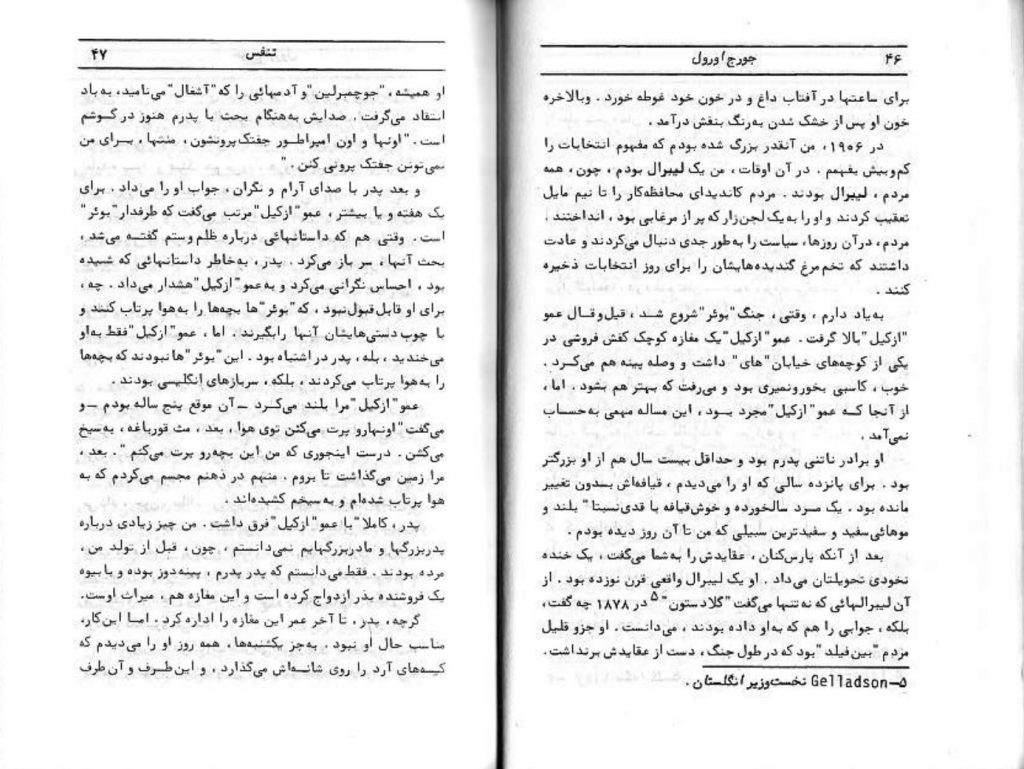 ۴۶ جورج اورول
برای ساعتها در آفتاب داغ و در خون خود غوطه خورد . وبالاخره
خون او پس از خشک شدن به‌رنگ بنفش درآمد .
در ۱۹۰۶، من آنقدر بزرگ شده بودم که مفهوم انتخابات را
کم‌وبیش بفهمم . در آن اوقات ، من یک لیبرال بودم ، چون ، همه
مردم ، لیبرال بودند . مردم کاندیدای محافظه‌کار را تا نیم مایل
تعقیب کردند و او را به‌یک لجن‌زار که پر از مرغابی بود ، انداختند .
مردم ، درآن روزها، سیاست را به‌طور جدی دنبال می‌کردند و عادت
داشتند که تخم‌مرغ گندیده‌هایشان را برای روز انتخابات ذخیره
کنند .
به‌یاد دارم ، وقتی ، جنگ "بوئر" شروع شد ، قیل‌وقال عمو
"ازکیل" بالا گرفت . عمو "ازکیل" یک مغازه کوچک کفش فروشی در
یکی از کوچه‌های خیابان "های" داشت و وصله پینه هم می‌کرد .
خوب ، کاسبی بخورونمیری بود و می‌رفت که بهتر هم بشود . اما ،
از آنجا که عمو "ازکیل" مجرد بود ، این مساله مهمی به‌حساب
نمی‌آمد .
او برادر ناتنی پدرم بود و حداقل بیست سال هم از او بزرگتر
بود . برای پانزده سالی که او را می‌دیدم ، قیافه‌اش بدون تغییر
مانده بود . یک مرد سالخورده و خوش‌قیافه با قدی‌نسبتا" بلند و
موهائی‌سفید و سفیدترین سبیلی که من تا آن روز دیده بودم .
بعد از آنکه پارس‌کنان ، عقایدش را به‌شما می‌گفت ، یک خنده
نخودی تحویلتان می‌داد . او یک لیبرال واقعی قرن نوزده بود . از
آن لیبرالهائی که نه‌تنها می‌گفت "گلادستون"۵ در ۱۸۷۸ چه گفت ،
بلکه ، جوابی را هم که به‌او داده بودند ، می‌دانست . او جزو قلیل
مردم "بین‌فیلد" بود که در طول جنگ ، دست از عقایدش برنداشت .
۵— Gelladson نخست‌وزیر انگلستان .
تنفس ۴۷
او همیشه ، "جوچمبرلین" و آدمهائی را که "آشغال" می‌نامید، به‌باد
انتقاد می‌گرفت . صدایش به‌هنگام بحث با پدرم هنوز در گوشم
است . "اونها و اون امپراطور جفتک‌پرونشون ، منتها ، برای من
نمی‌تونن جفتک پرونی کنن . "
و بعد پدر با صدای آرام و نگران ، جواب او را می‌داد . برای
یک هفته و یا بیشتر ، عمو "ازکیل" مرتب می‌گفت که طرفدار "بوئر"
است . وقتی هم که داستانهائی درباره ظلم‌وستم گفته می‌شد ،
بحث آنها ، سر باز می‌کرد . پدر ، به‌خاطر داستانهائی که شنیده
بود ، احساس نگرانی می‌کرد و به‌عمو "ازکیل" هشدار می‌داد . چه ،
برای او قابل‌قبول‌نبود ، که "بوئر"ها بچه‌ها را به‌هوا پرتاب کنند و
با چوب دستی‌هایشان آنها رابگیرند . اما ، عمو "ازکیل" فقط به‌او
می‌خندید ، بله ، پدر در اشتباه بود . این "بوئر"ها نبودند که بچه‌ها
را به‌هوا پرتاب می‌کردند ، بلکه ، سربازهای انگلیسی بودند .
عمو "ازکیل" مرا بلند می‌کرد — آن موقع پنج ساله بودم — و
می‌گفت "اونهارو پرت می‌کنن توی هوا ، بعد ، مث قورباغه ، به‌سیخ
می‌کشن . درست اینجوری که من این بچه‌رو پرت می‌کنم" . بعد ،
مرا زمین می‌گذاشت تا بروم . منهم در ذهنم مجسم می‌کردم که به
هوا پرتاب شده‌ام و به‌سیخم کشیده‌اند .
پدر ، کاملا" با عمو "ازکیل" فرق داشت . من چیز زیادی درباره
پدربزرگها و مادربزرگهایم نمی‌دانستم ، چون ، قبل از تولد من ،
مرده بودند . فقط می‌دانستم که پدر پدرم ، پینه‌دوز بوده و با بیوه
یک فروشنده بذر ازدواج کرده است و این مغازه هم ، میراث اوست.
گرچه ، پدر ، تا آخر عمر این مغازه را اداره کرد . اما این‌کار،
مناسب حال او نبود . به‌جز یکشنبه‌ها ، همه روز او را می‌دیدم که
کیسه‌های آرد را روی شانه‌اش می‌گذارد ، و این‌طرف و آن‌طرف